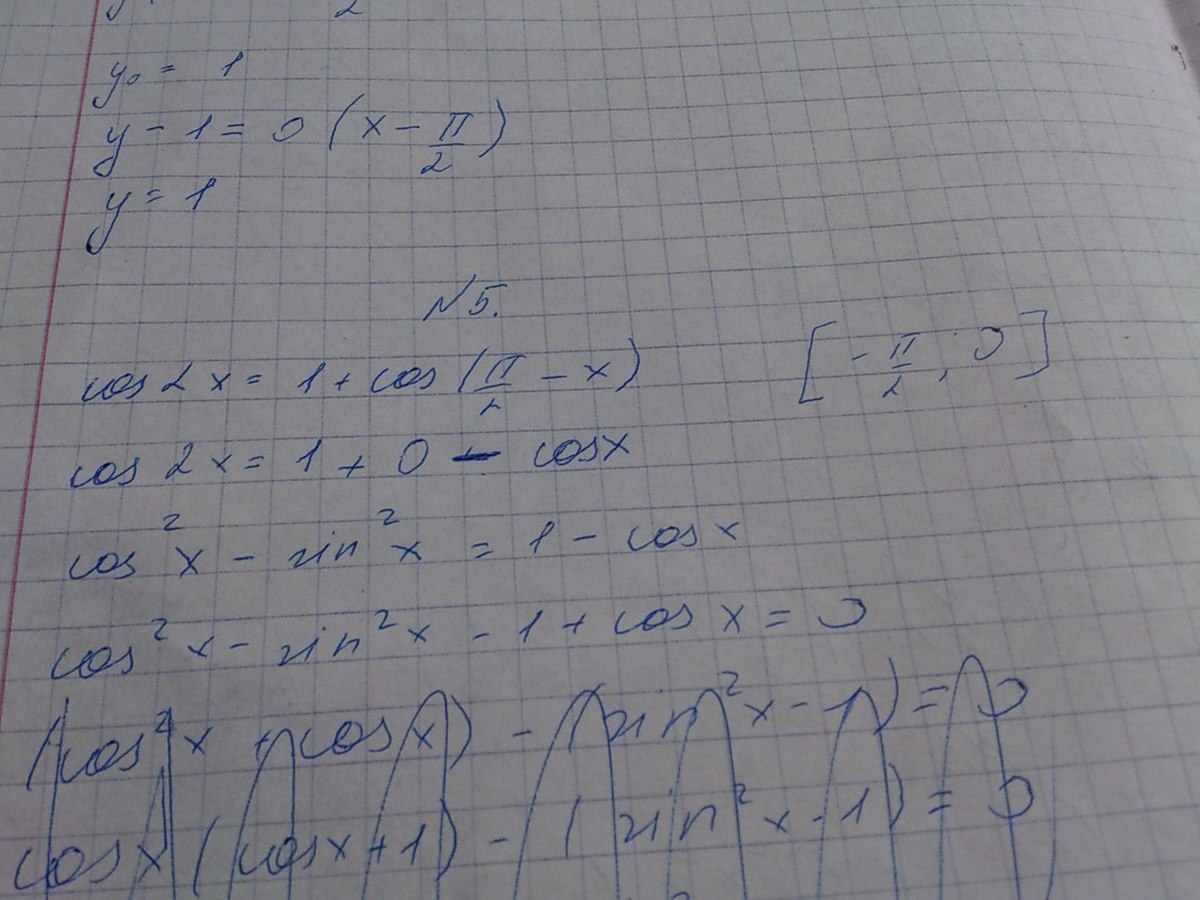 y₀ = 1
y - 1 = 0 (x - π/2)
y = 1
N5.
cos 2x = 1 + cos (π/2 - x) [-π/2; 0]
cos 2x = 1 + 0 - cosx
cos²x - sin²x = 1 - cosx
cos²x - sin²x - 1 + cos x = 0
(cos²x + cosx) - (sin²x - 1) = 0
cosx (cosx + 1) - (sin²x - 1) = 0